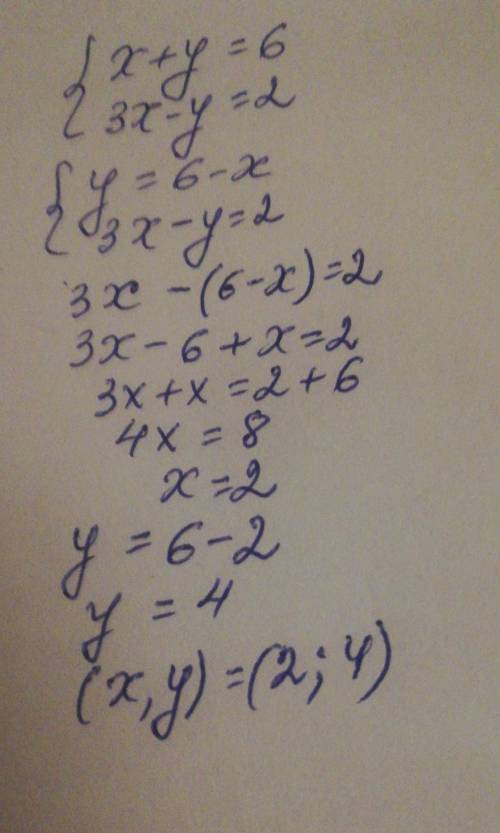 { x+y=6
3x-y=2
{ y=6-x
3x-y=2
3x-(6-x)=2
3x-6+x=2
3x+x=2+6
4x=8
x=2
y=6-2
y=4
(x,y)=(2;4)